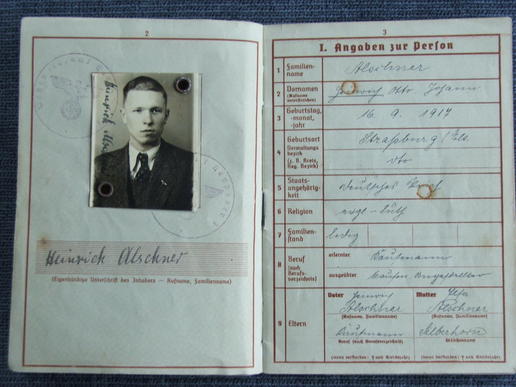 2
Heinrich Alschner
Heinrich Alschner
(Eigenhändige Unterschrift des Inhabers — Rufname, Familienname)
3
I. Angaben zur Person
1 Familien-
name
Alschner
2 Vornamen
(Rufname
unterstreichen)
Heinrich Otto Johann
3 Geburtstag,
-monat,
-jahr
16. 9. 1917
4 Geburtsort
Verwaltungs-
bezirk
(z. B. Kreis,
Reg. Bezirk)
Straßburg / Els.
dto
5 Staats-
angehörig-
keit
Deutsches Reich
6 Religion
evgl-luth
7 Familien-
stand
ledig
8 Beruf
(nach
Berufs-
verzeichnis)
erlernter
Kaufmann
ausgeübter
Kaufm. Angestellter
9 Eltern
Vater
Heinrich
Alschner
(Rufname, Familienname)
Kaufmann
Beruf (nach Berufsverzeichnis)
Mutter
Alschner
(Rufname, Familienname)
Silberhorn
(Mädchenname)
(wenn verstorben: † und Sterbejahr)
(wenn verstorben: † und Sterbejahr)